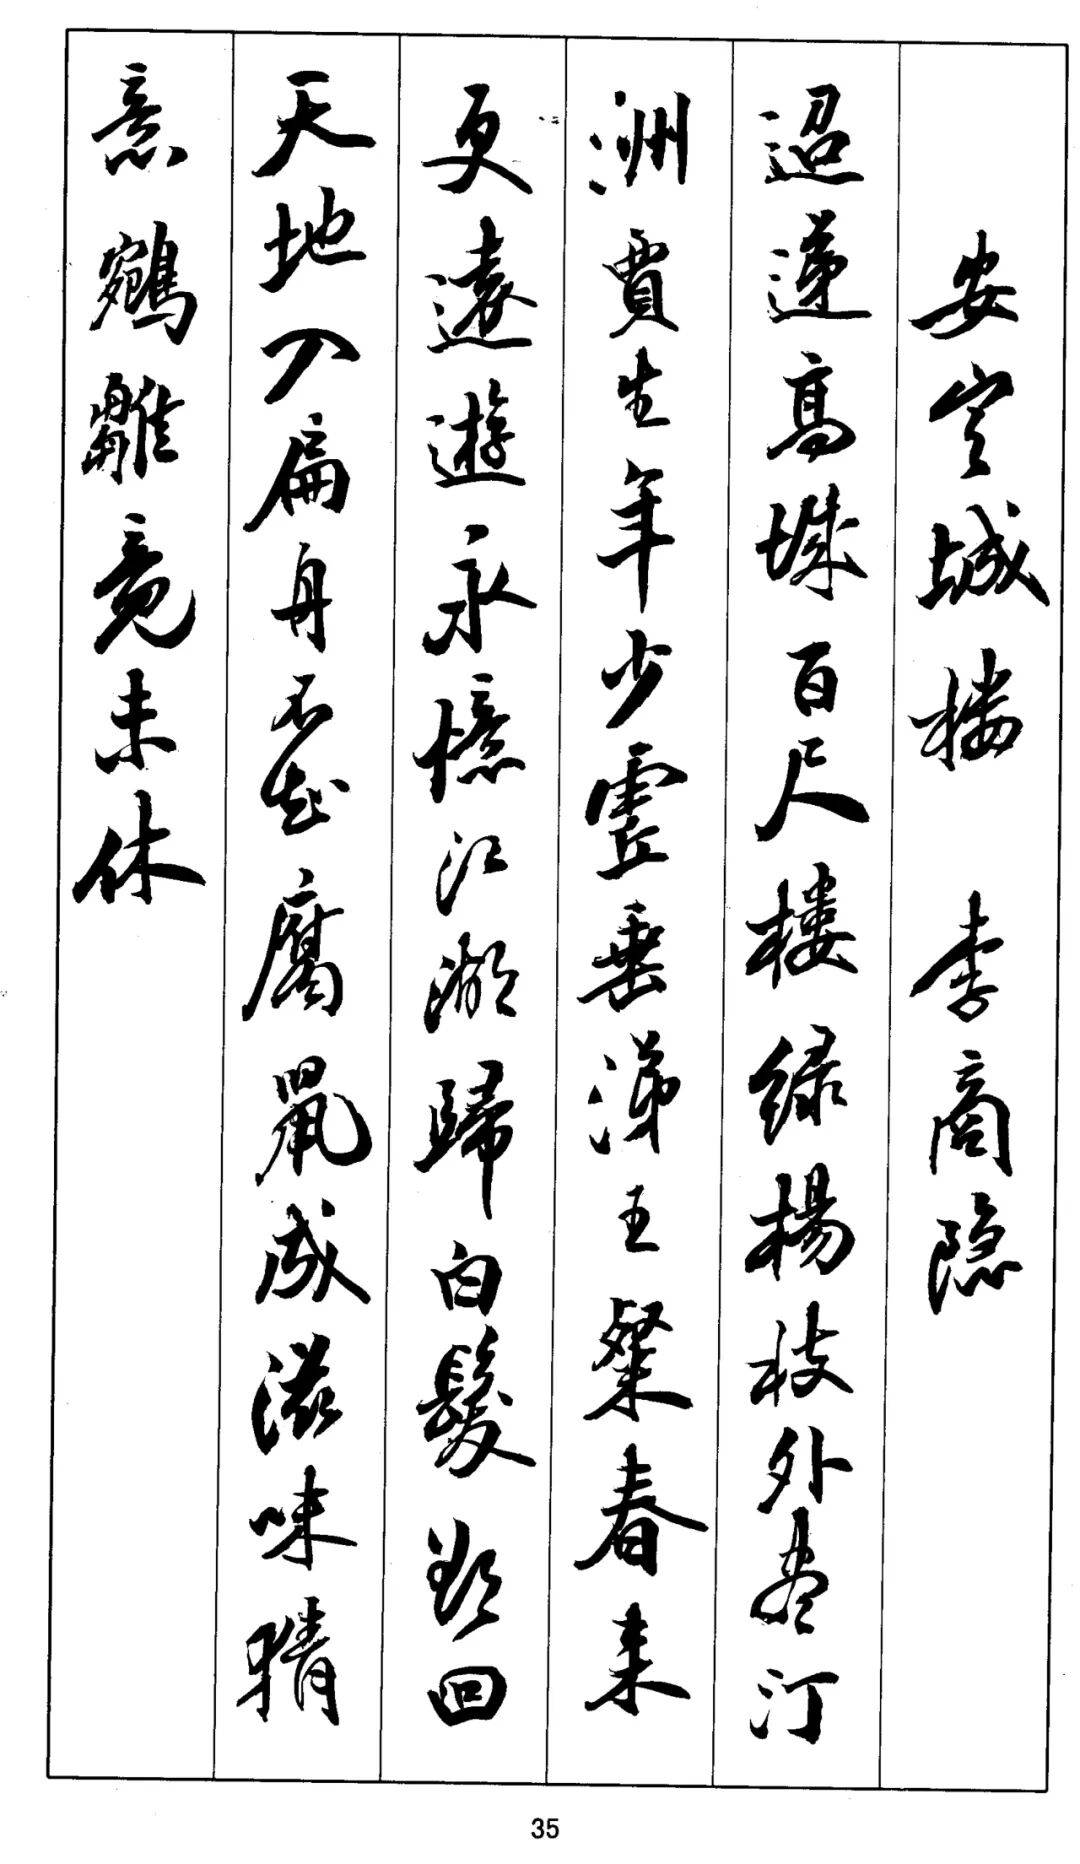 安定城楼 李商隐
迢递高城百尺楼绿楊枝外尽汀
洲賈生年少虚垂涕王粲春来
更遠遊永憶江湖歸白髮欲回
天地入扁舟不知腐鼠成滋味猜
意鵷雛竟未休
35